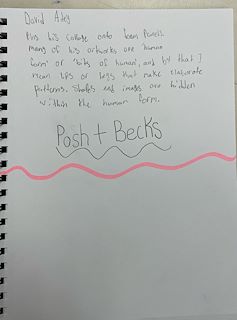 David
his collage onto
many of his artworks are human
form or 'bits of human', and by that I
mean lips or legs that make elaborate
patterns. Shapes and images are hidden
within the human form.
Posh + Becks